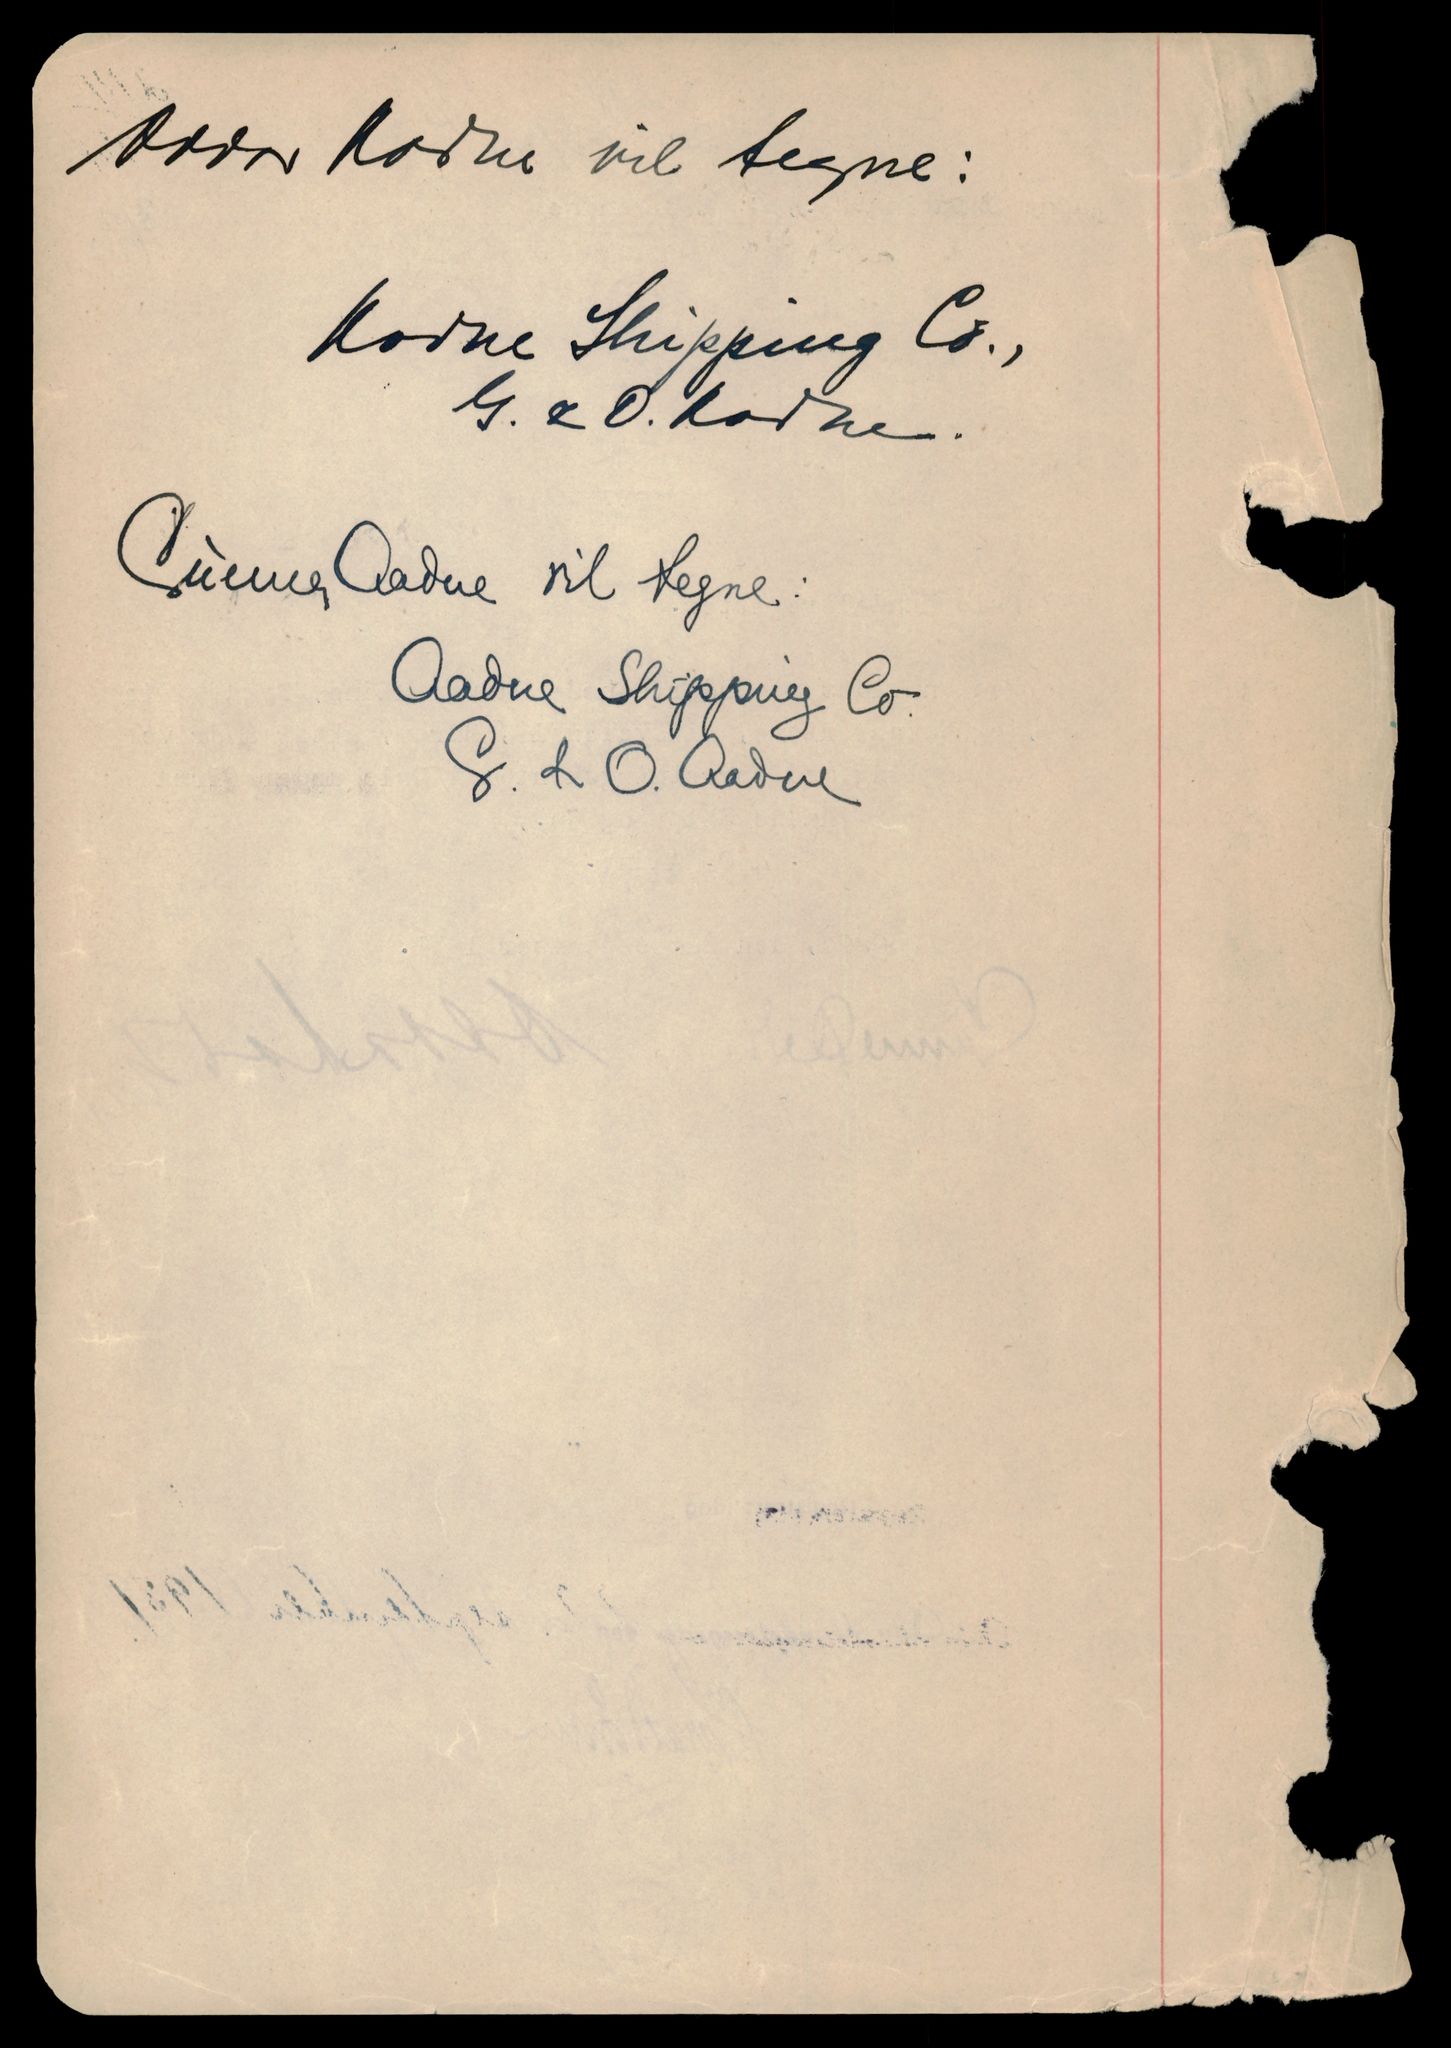 Oddar Aadne vil tegne:
Aadne Shipping Co.,
G. & O. Aadne.
Gunnar Aadne vil tegne:
Aadne Shipping Co.
G. & O. Aadne